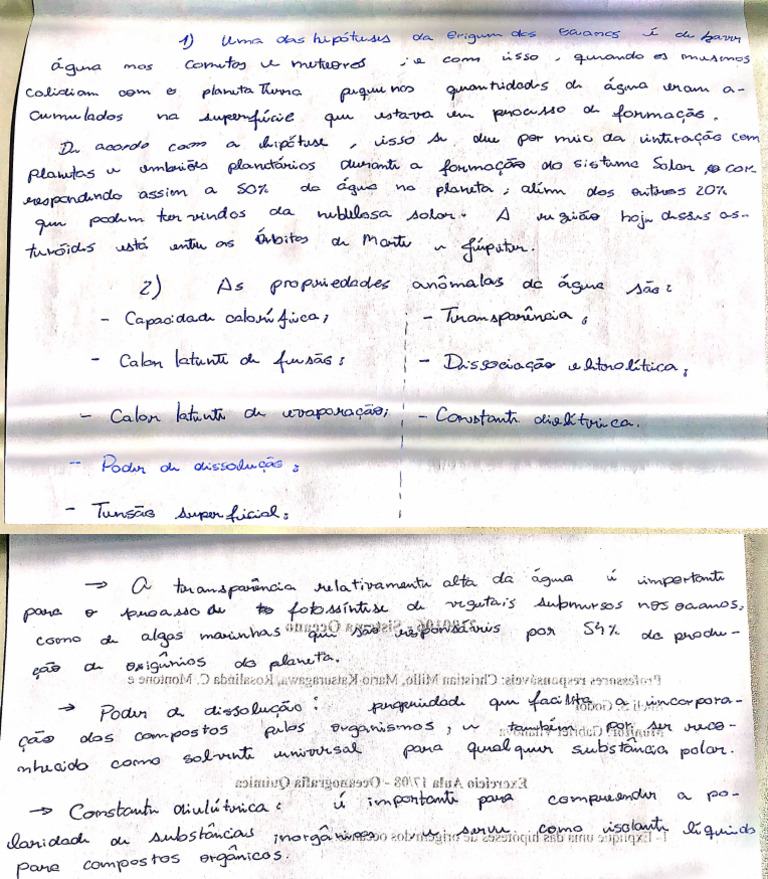 1) Uma das hipóteses da origem dos oceanos é de haver
água nos cometas e meteores, e com isso, quando os mesmos
colidiam com o planeta Terra pequenos quantidades de água eram a-
cumulados na superfície que estava em processo de formação.
De acordo com a hipótese, isso se deu por meio da interação com
planetas e embriões planetários durante a formação do sistema Solar, cor-
respondendo assim a 50% da água no planeta, além dos outros 20%
que podem ter vindos da nebulosa solar. A região hoje desses as-
teróides está entre as Órbitas de Marte e Júpiter.
2) As propriedades anômalas da água são:
- Capacidade calorífica;
- Calor latente de fusão;
- Calor latente de evaporação;
- Poder de dissolução;
- Tensão superficial;
- Transparência;
- Dissociação eletrolítica;
- Constante dielétrica.
→ A transparência relativamente alta da água é importante
para o processo de fotossíntese de vegetais submersos nos oceanos,
como de algas marinhas que são responsáveis por 54% da produ-
ção de oxigênios do planeta.
Professores responsáveis: Christian Millo, Mario Katsuragawa, Rosalinda C. Montone e
→ Poder de dissolução: propriedade que facilita a incorpora-
ção dos compostos pelos organismos, e também por ser reco-
nhecido como solvente universal para qualquer substância polar.
Exercício Aula 17/08 - Oceanografia Química
→ Constante dielétrica: é importante para compreender a po-
laridade de substâncias inorgânicas e serve como isolante líquido
1- Explique uma das hipóteses de origem dos oceanos
para compostos orgânicos.